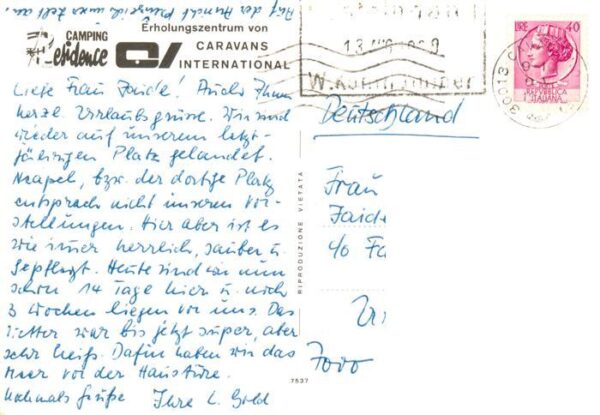 Auf der Ansicht
unser Zelt an.
CAMPING
Residence
Erholungszentrum von
CARAVANS
INTERNATIONAL
LIRE 40
REPVBBLICA
ITALIANA
30013
Liebe Frau Jaide! Auch Ihnen
herzl. Urlaubsgrüsse. Wir sind
wieder auf unserem letzt-
jährigen Platz gelandet.
Neapel, bzw. der dortige Platz
entsprach nicht unseren Vor-
stellungen. Hier aber ist es
wie immer herrlich, sauber u.
gepflegt. Heute sind wir nun
schon 14 Tage hier u. noch
3 Wochen liegen vor uns. Das
Wetter war bis jetzt super, aber
sehr heiß. Dafür haben wir das
Meer vor der Haustüre.
Nochmals Grüße
Ihre L. Gold
RIPRODUZIONE VIETATA
7537
Deutschland
Frau
Jaide
40 Fa
7000